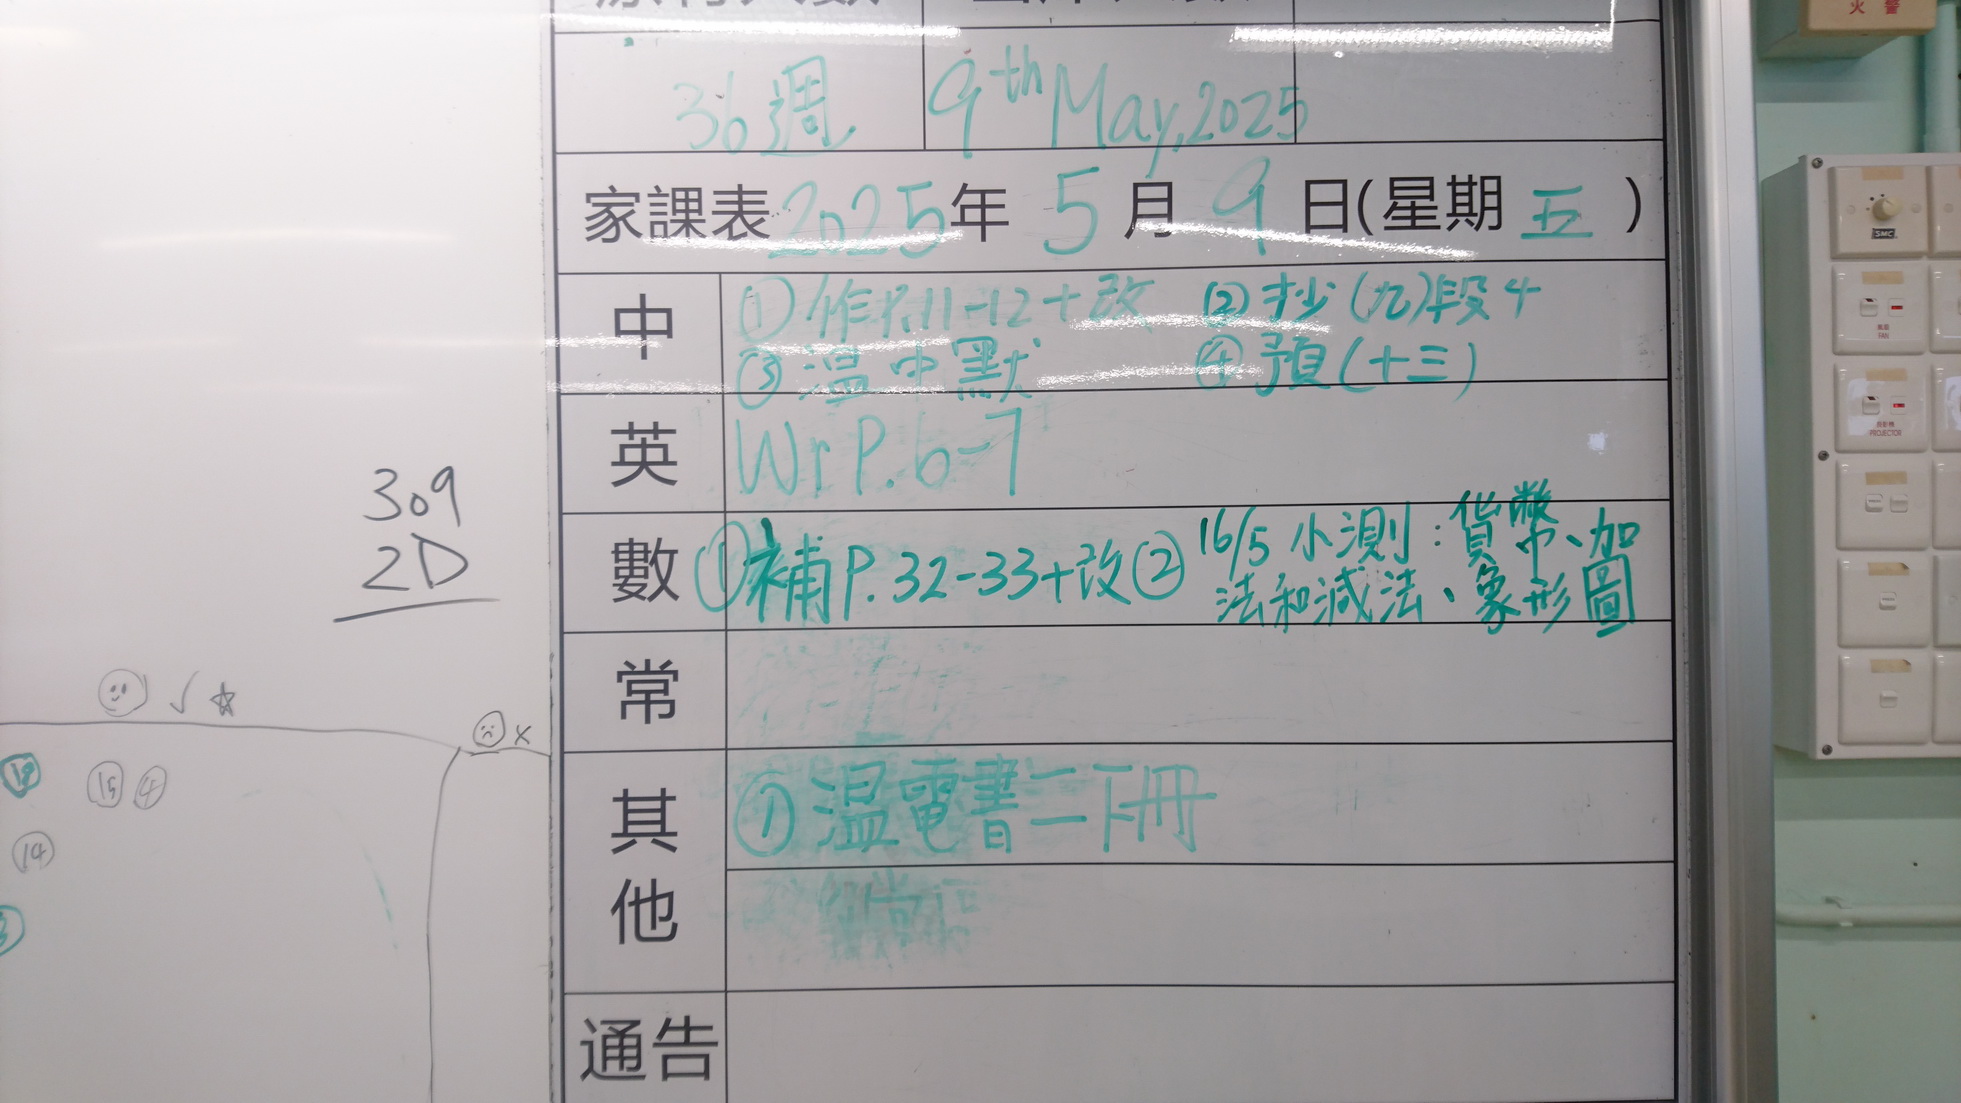 36週 9th May, 2025
家課表 2025年 5月 9日(星期五)
中 ①作P.11-12+改 ②抄(九)段4
③温中默 ④預(十三)
英 Wr P.6-7
數 ①補P.32-33+改 ② 16/5 小測：貨幣、加
法和減法、象形圖
常
其他 ①温電書二下冊
通告
309
2D
✓ ☆
x
19 15 4
14
火警
SMC
FAN
PROJECTOR